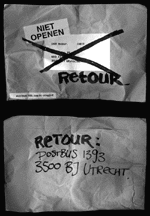 NIET
OPENEN
RETOUR
RETOUR:
POSTBUS 1393
3500 BJ UTRECHT.